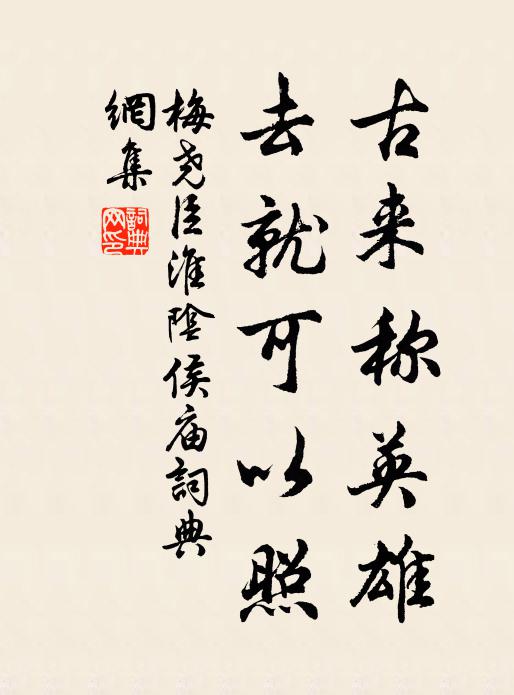 古来称英雄
去就可以照
梅尧臣淮陰侯庙詞典
網集
詞典
网印